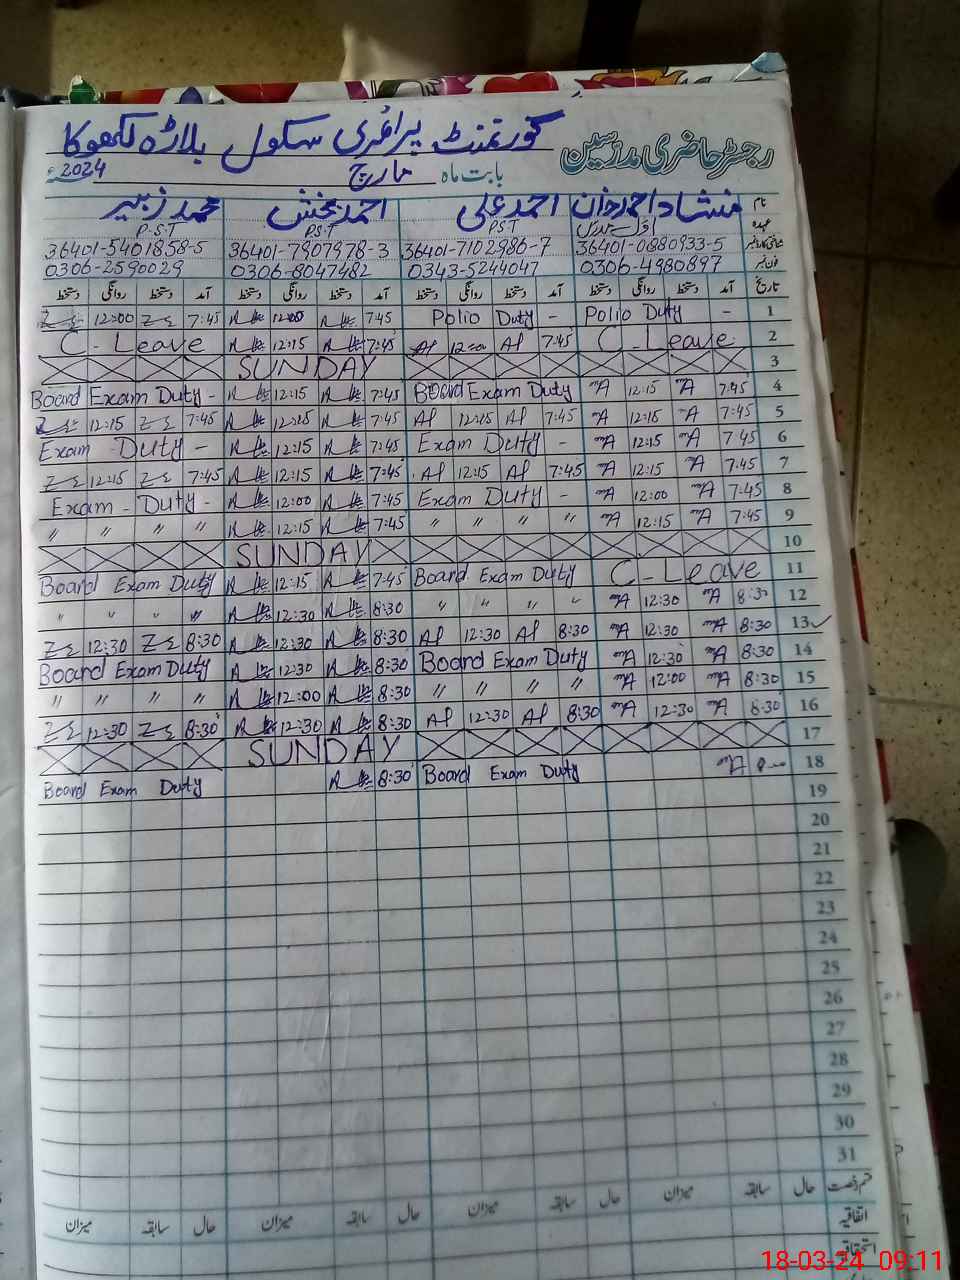 گورنمنٹ پرائمری سکول بلاڑہ لکھوکا
رجسٹر حاضری مدرسین
بابت ماہ مارچ 2024ء
نام منشاد احمد خان احمد علی احمد بخش محمد زبیر
عہدہ اول مدرس P.S.T P.S.T P.S.T
شناختی کارڈ نمبر 36401-0880933-5 36401-7102986-7 36401-7907978-3 36401-5401858-5
فون نمبر 0306-4980897 0343-5244047 0306-8047482 0306-2590029
تاریخ آمد دستخط روانگی دستخط آمد دستخط روانگی دستخط آمد دستخط روانگی دستخط آمد دستخط روانگی دستخط
12:00 7:45 12:00 7:45 Polio Duty - Polio Duty - 1
C-Leave 12:15 7:45 Af 12:00 Af 7:45 C-Leave 2
SUNDAY 3
Board Exam Duty - 12:15 7:45 Board Exam Duty 12:15 7:45 4
12:15 7:45 12:15 7:45 Af 12:15 Af 7:45 12:15 7:45 5
Exam Duty - 12:15 7:45 Exam Duty - 12:15 7:45 6
12:15 7:45 12:15 7:45 Af 12:15 Af 7:45 12:15 7:45 7
Exam - Duty - 12:00 7:45 Exam Duty - 12:00 7:45 8
" " " " 12:15 7:45 " " " " 12:15 7:45 9
SUNDAY 10
Board Exam Duty 12:15 7:45 Board Exam Duty C-Leave 11
" " " " 12:30 8:30 " " " " 12:30 8:30 12
12:30 8:30 12:30 8:30 Af 12:30 Af 8:30 12:30 8:30 13
Board Exam Duty 12:30 8:30 Board Exam Duty 12:30 8:30 14
" " " " 12:00 8:30 " " " " 12:00 8:30 15
12:30 8:30 12:30 8:30 Af 12:30 Af 8:30 12:30 8:30 16
SUNDAY 17
Board Exam Duty 8:30 Board Exam Duty 18
19
20
21
22
23
24
25
26
27
28
29
30
31
قسم رخصت حال سابقہ میزان حال سابقہ میزان حال سابقہ میزان حال سابقہ میزان
اتفاقیہ
استحقاقیہ
18-03-24 09:11